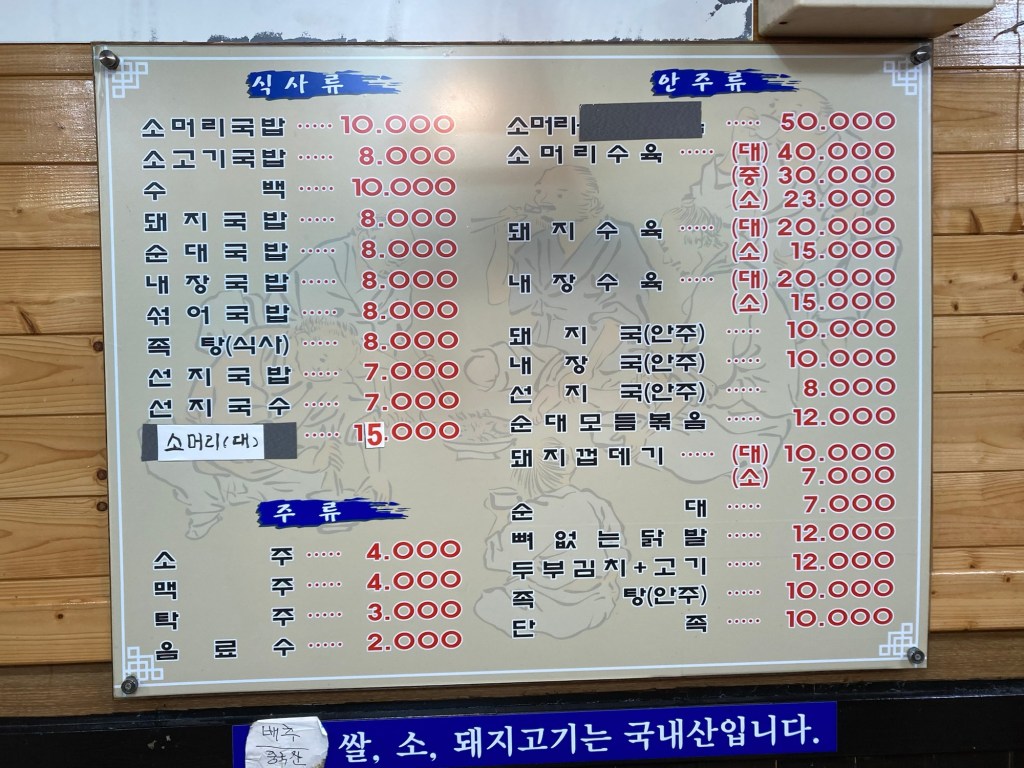 식사류
소머리국밥 ····· 10.000
소고기국밥 ····· 8.000
수 백 ····· 10.000
돼지국밥 ····· 8.000
순대국밥 ····· 8.000
내장국밥 ····· 8.000
섞어국밥 ····· 8.000
족 탕(식사) ····· 8.000
선지국밥 ····· 7.000
선지국수 ····· 7.000
소머리(대) ····· 15.000
주류
소 주 ····· 4.000
맥 주 ····· 4.000
탁 주 ····· 3.000
음 료 수 ····· 2.000
안주류
소머리 ····· 50.000
소머리수육 ····· (대) 40.000
(중) 30.000
(소) 23.000
돼지수육 ····· (대) 20.000
(소) 15.000
내장수육 ····· (대) 20.000
(소) 15.000
돼지국(안주) ····· 10.000
내장국(안주) ····· 10.000
선지국(안주) ····· 8.000
순대모듬볶음 ····· 12.000
돼지껍데기 ····· (대) 10.000
(소) 7.000
순 대 ····· 7.000
뼈없는닭발 ····· 12.000
두부김치+고기 ····· 12.000
족 탕(안주) ····· 10.000
단 족 ····· 10.000
배추
중국산
쌀, 소, 돼지고기는 국내산입니다.